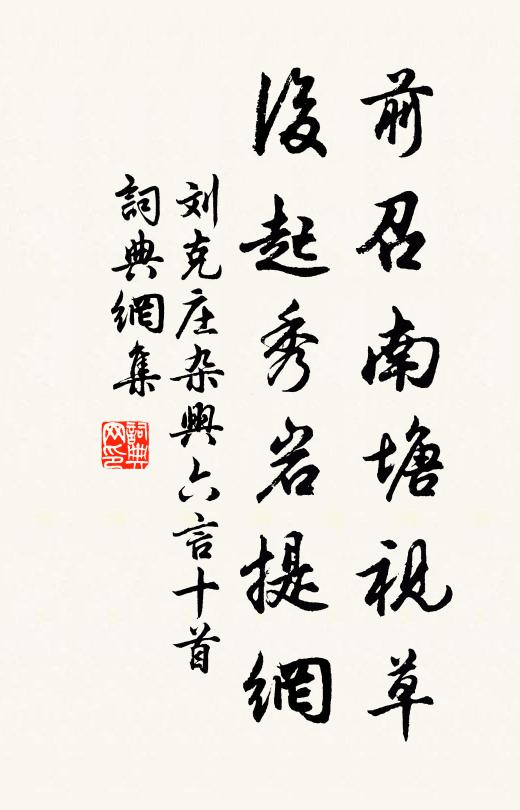 前召南塘視草
後起秀岩提網
刘克庄杂興六言十首
詞典網集
詞典
网印